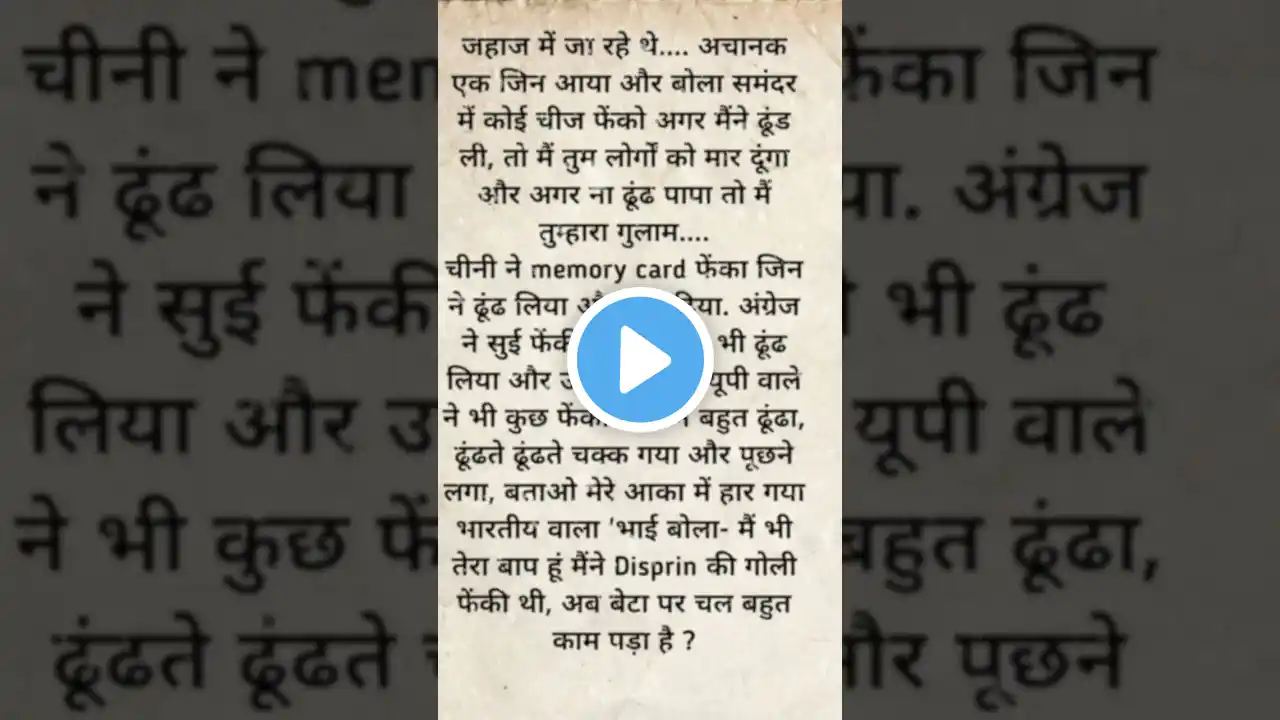 जहाज में जा रहे थे.... अचानक
एक जिन आया और बोला समंदर
में कोई चीज फेंको अगर मैंने ढूंड
ली, तो मैं तुम लोगों को मार दूंगा
और अगर ना ढूंढ पापा तो मैं
तुम्हारा गुलाम....
चीनी ने memory card फेंका जिन
ने ढूंढ लिया अंग्रेज
ने सुई भी ढूंढ
लिया और यूपी वाले
ने भी कुछ बहुत ढूंढा,
ढूंढते ढूंढते चक्क गया और पूछने
लगा, बताओ मेरे आका में हार गया
भारतीय वाला 'भाई बोला- मैं भी
तेरा बाप हूं मैंने Disprin की गोली
फेंकी थी, अब बेटा पर चल बहुत
काम पड़ा है ?